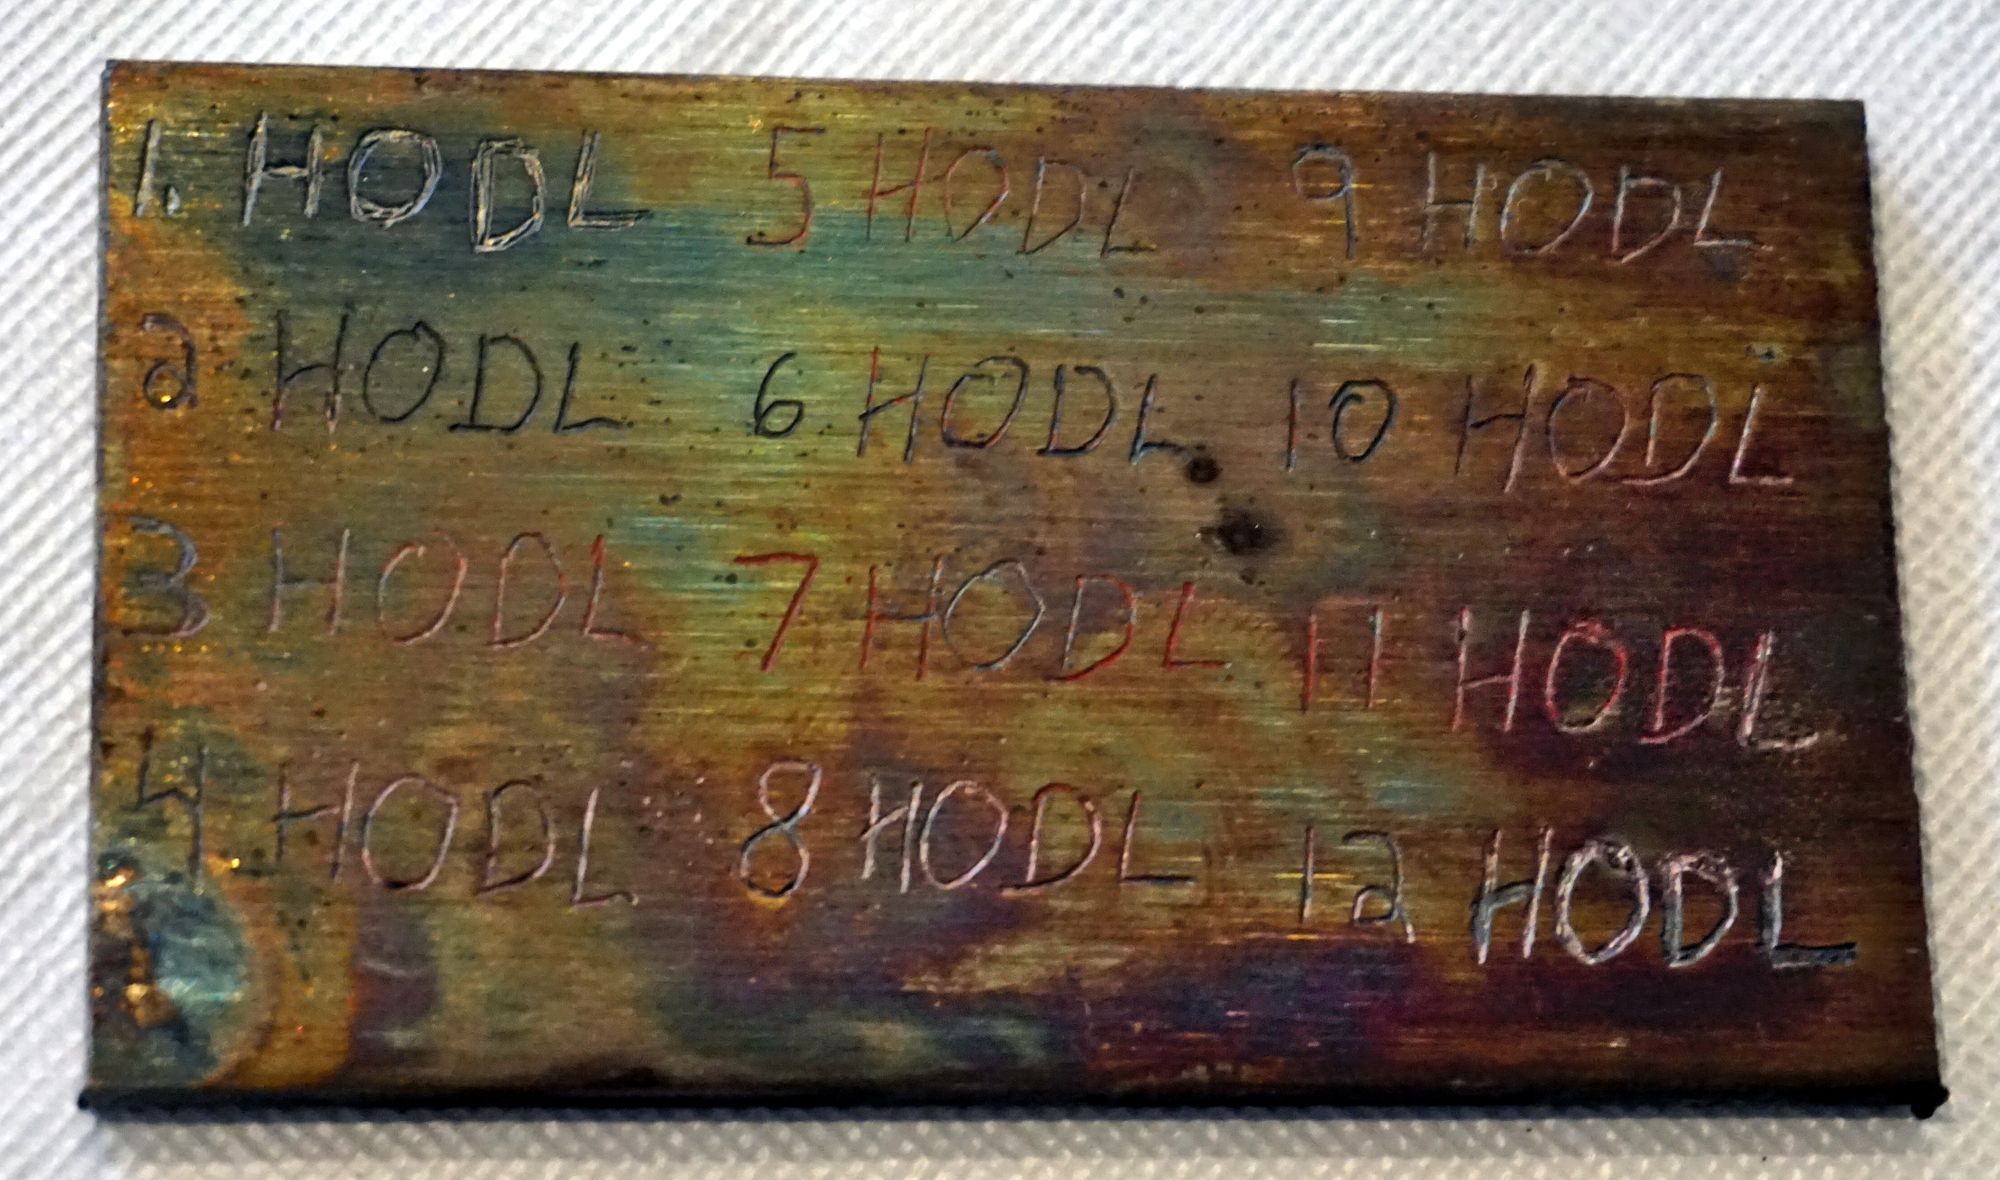 1. HODL 5 HODL 9 HODL
2 HODL 6 HODL 10 HODL
3 HODL 7 HODL 11 HODL
4 HODL 8 HODL 12 HODL